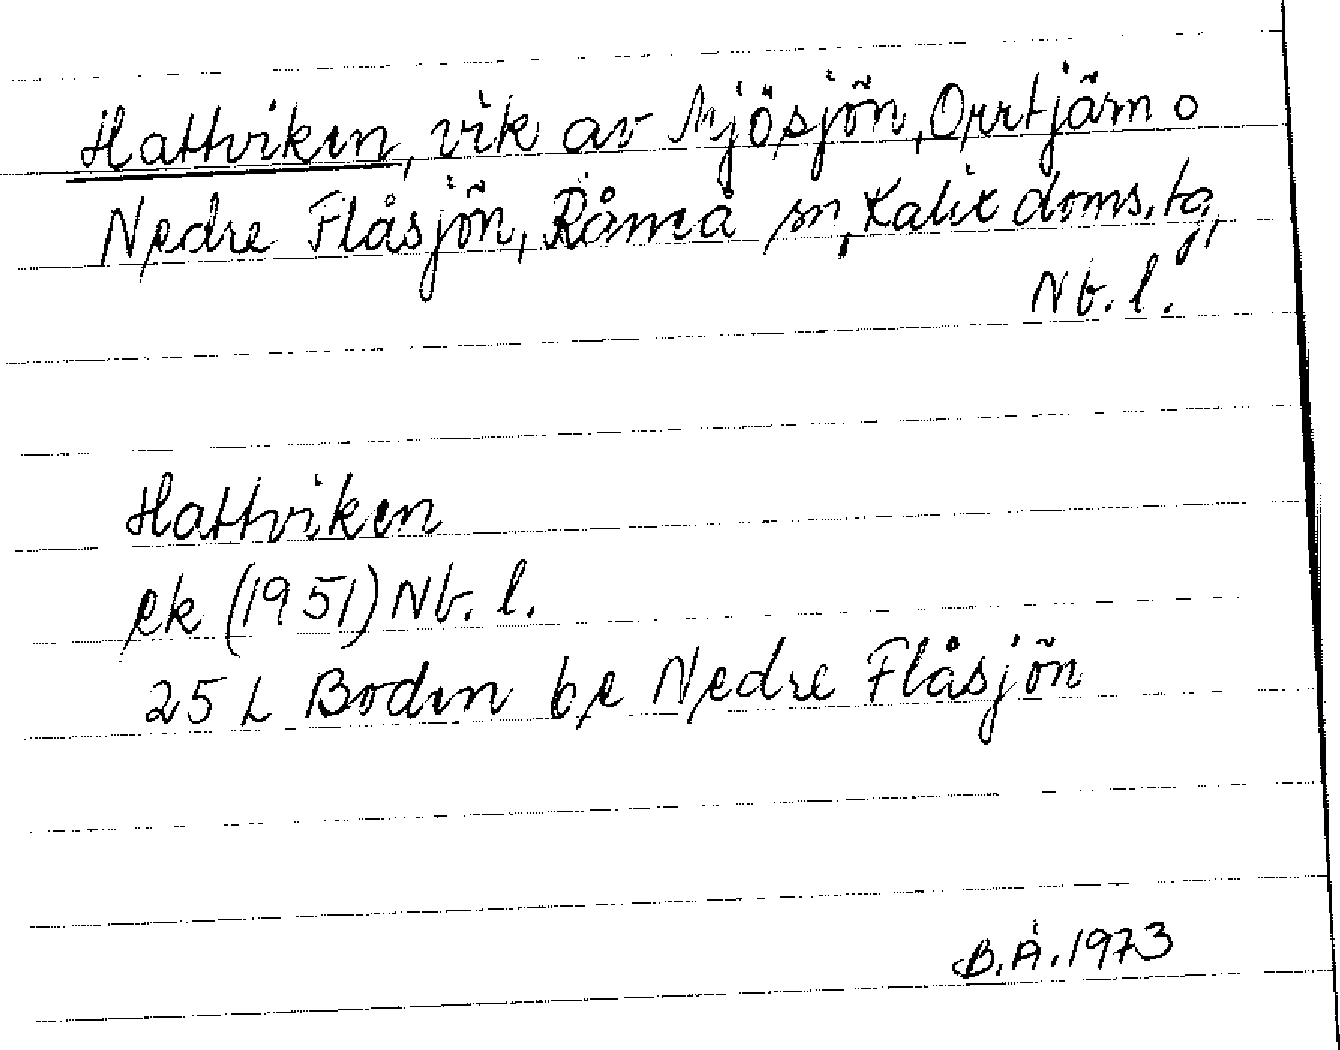 Hattviken, vik av Mjösjön, Orrtjärn o
Nedre Flåsjön, Råneå sn, Kalix doms. tg,
Nb. l.
Hattviken
ek (1951) Nb. l.
25 L Boden be Nedre Flåsjön
B.Å. 1973